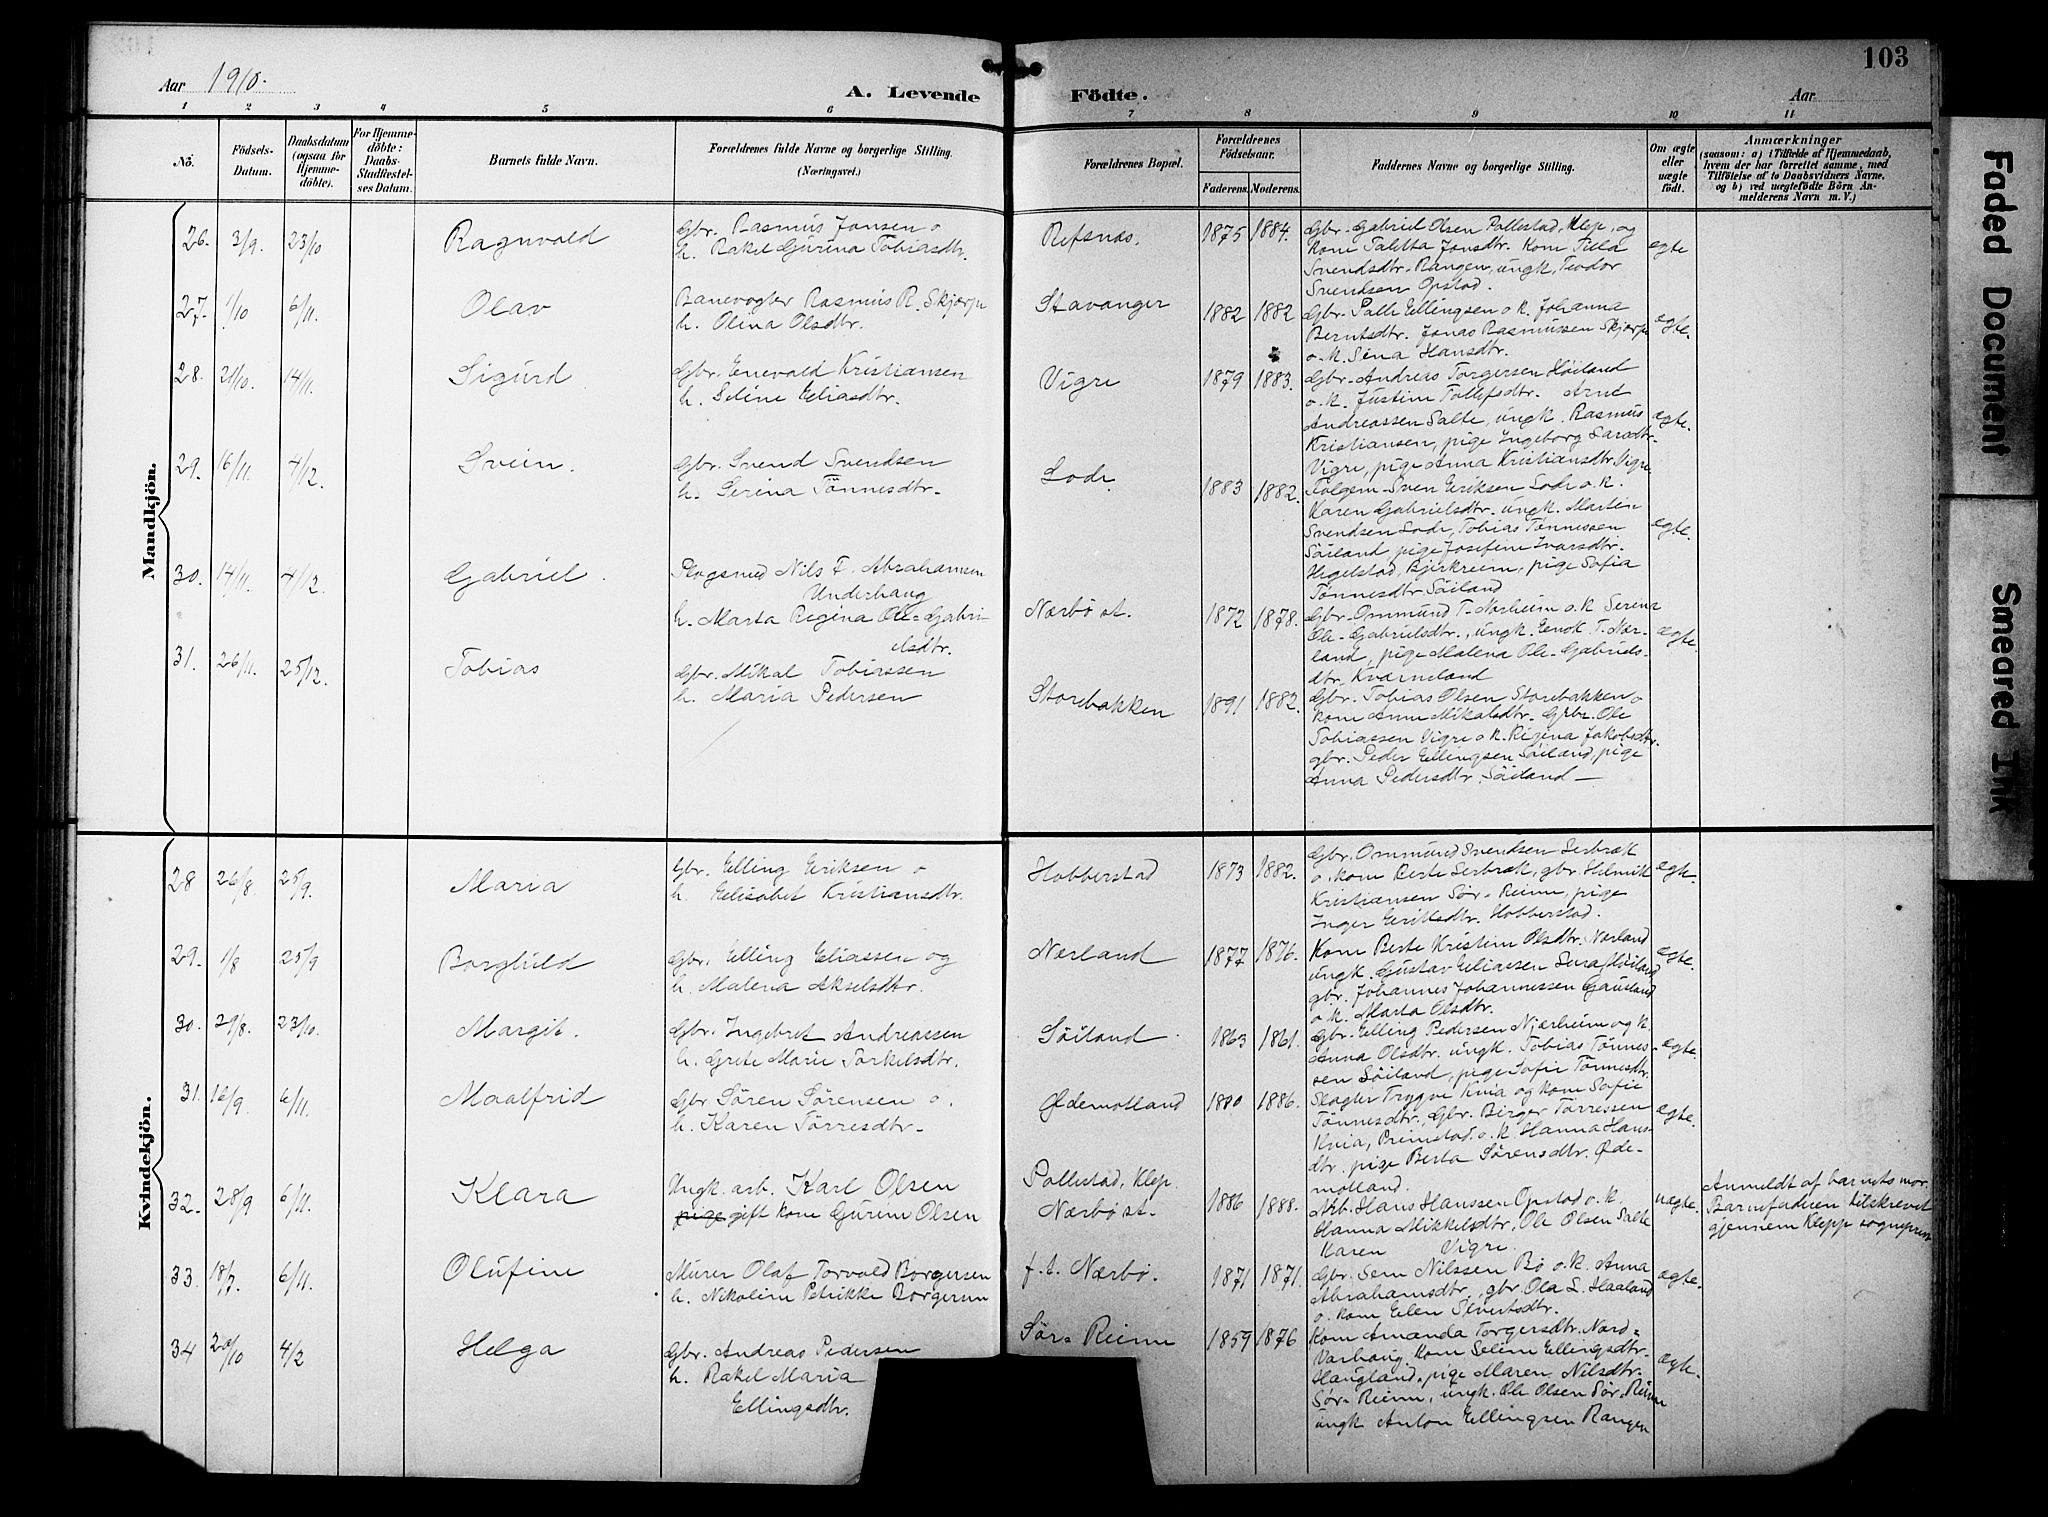 Aar 1910.
A. Levende Födte.
103
Aar
1 2 3 4 5 6 7 8 9 10 11
Nö.
Födsels-Datum.
Daabsdatum (ogsaa for Hjemme-döbte).
For Hjemme-döbte: Daabs-Stadfæstel-ses Datum.
Barnets fulde Navn.
Forældrenes fulde Navne og borgerlige Stilling. (Næringsvei.)
Forældrenes Bopæl.
Forældrenes Födselsaar.
Faderens. Moderens.
Faddernes Navne og borgerlige Stilling.
Om ægte eller uægte födt.
Anmærkninger
(saasom: a) i Tilfælde af Hjemmedaab, hvem der har forrettet samme, med Tilföielse af to Daabsvidners Navne, og b) ved uægtefödte Börn An-melderens Navn m. V.)
Mandkjön.
26. 3/9. 23/10 Ragnvald
Gbr. Rasmus Jonsen o
h. Rakel Gurina Tobiasdtr.
Refsnæs. 1875 1884.
Gbr. Gabriel Olsen Pollestad, Klep, og
kone Taletta Jonsdtr. Kone
Svendsdtr. Rangen, ungk. Teodor
Svendsen Opstad.
ægte
27. 1/10 6/11. Olav
Banevogter Rasmus R. Skjærpe
h. Olina Olsdtr.
Stavanger 1882 1882
Gbr. Palle Ellingsen o. k. Johanna
Berntsdtr. Jonas Rasmussen Skjærpe
o. k. Sina Hansdtr.
ægte.
28. 21/10. 14/11. Sigurd
Gbr. Enevold Kristiansen
h. Seline Eliasdtr.
Vigre 1879 1883.
Gbr. Andreas Torgersen Höiland
o. k. Justine Tollefsdtr. Arne
Andreassen Salte, ungk. Rasmus
Kristiansen, pige Ingeborg Larsdtr.
Vigre, pige Anna Kristiansdtr. Vigre
ægte.
29. 16/11. 4/12. Svein.
Gbr. Svend Svendsen
h. Serina Tönnesdtr.
Lode. 1883 1882.
Fölgem. Sven Eriksen Lode o. k.
Karen Gabrielsdtr. ungk. Martin
Svendsen Lode, Tobias Tönnessen
Söiland, pige Josefine Ivarsdtr.
Hegelstad, Bjerkreim, pige Sofia
Tönnesdtr. Söiland
ægte.
30. 14/11. 4/12. Gabriel.
Plogsmed Nils F. Abrahamsen
Underhaug
h. Marta Regina Ole-Gabri-
elsdtr.
Nærbö st. 1872 1878.
Gbr. Ommund T. Norheim o. k Serena
Ole-Gabrielsdtr., ungk. Enok T. Nær-
land, pige Malena Ole-Gabriels-
dtr. Kværneland
ægte.
31. 26/11. 25/12. Tobias
Gbr. Mikal Tobiassen
h. Maria Pedersen
Storebakken 1891 1882.
Gbr. Tobias Olsen Storebakken o
kone Anne Mikalsdtr. Gbr. Ole
Tobiassen Vigre o. k. Regina Jakobsdtr.
gbr. Peder Ellingsen Söiland, pige
Anna Pedersdtr. Söiland —
Kvindekjön.
28 26/8. 25/9. Maria
Gbr. Elling Eriksen o
h. Elisabet Kristiansdtr.
Hobberstad 1873 1882.
Gbr. Ommund Svendsen Serbræk
o. kone Berte Serbræk, gbr. Helmik
Kristiansen Sör-Reime, pige
Inger Eriksdtr. Hobberstad.
ægte.
29. 1/8 25/9 Borghild
Gbr. Elling Eliassen og
h. Malena Akselsdtr.
Nærland 1877 1876.
Kone Berte Kristine Olsdtr. Nærland
ungk. Gustav Eliassen Höiland
gbr. Johannes Johannessen Gausland
o. k. Marta Olsdtr.
ægte.
30. 29/8. 23/10. Margit.
Gbr. Ingebret Andreassen
h. Grete Marie Torkelsdtr.
Söiland 1863 1861.
Gbr. Elling Pedersen Njærheim og k.
Anna Olsdtr. ungk. Tobias Tönnes-
sen Söiland, pige Sofie Tönnesdtr.
ægte.
31. 16/9. 6/11. Maalfrid
Gbr Sören Sörensen o.
h. Karen Törresdtr.
Ödemotland 1880 1886.
Slagter Trygve Kvia og kone Sofie
Tönnesdtr., Gbr. Birger Törressen
Kvia, Preimstad. o. k. Hanna Hans-
dtr. pige Berta Sörensdtr. Öde-
motland.
ægte.
32. 28/9 6/11. Klara
Ungk. arb. Karl Olsen
pige gift kone Gurine Olsen
Pollestad, Klep.
Nærbö st. 1886 1888.
Arb. Hans Hanssen Opstad o. k.
Hanna Mikkelsdtr. Ole Olsen Salte
Karen Vigre.
uægte.
Anmeldt af barnets mor.
Barnefaderen tilskrevet
gjennem Klepp sogneprest
33. 18/7. 6/11. Olufine
Murer Olaf Torvald Borgersen
h. Nikoline Petrikke Borgersen
f. t. Nærbö. 1871 1871.
Gbr. Sem Nilssen Bö o. k. Anna
Abrahamsdtr., gbr. Ola L. Haaland
o. kone Elen Sivertsdtr.
ægte.
34 20/10 4/2 Helga
Gbr. Andreas Pedersen
h. Rakel Maria
Ellingsdtr.
Sör-Reime 1859 1876
Kone Amanda Torgersdtr. Nord-
Varhaug kone Seline Ellingsdtr.
Haugland, pige Maren Nilsdtr.
Sör-Reime, ungk. Ole Olsen Sör-Reime
ungk Anton Ellingsen Rangen
ægte.
Faded Document
Smeared Ink